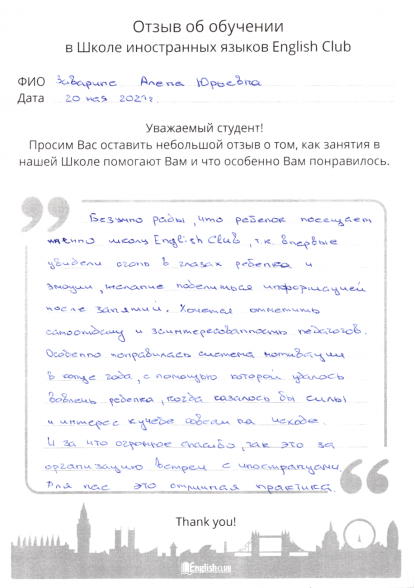 Отзыв об обучении
в Школе иностранных языков English Club
ФИО Заварине Алена Юрьевна
Дата 20 мая 2021г.
Уважаемый студент!
Просим Вас оставить небольшой отзыв о том, как занятия в
нашей Школе помогают Вам и что особенно Вам понравилось.
Безумно рады, что ребенок посещает
именно школу English Club, т.к. впервые
увидели огонь в глазах ребенка и
эмоции, желание поделиться информацией
после занятий. Хочется отметить
самоотдачу и заинтересованность педагогов.
Особенно понравилась система мотивации
в конце года, с помощью которой удалось
вовлечь ребенка, когда казалось бы силы
и интерес к учебе совсем на исходе.
И за что огромное спасибо, так это за
организацию встреч с иностранцами.
Для нас это отличная практика.
Thank you!
English CLUB